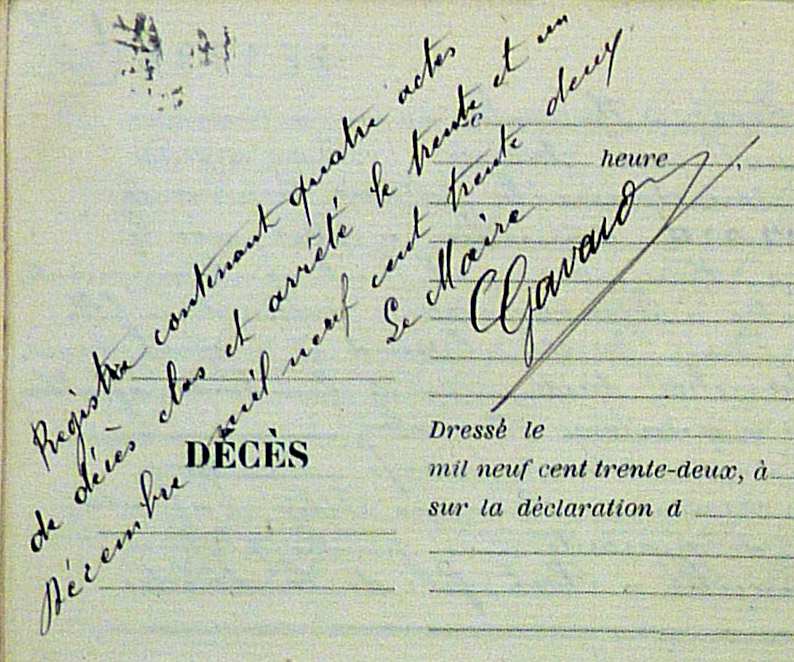 Registre contenant quatre actes
de décès clos et arrêté le trente et un
Décembre mil neuf cent trente deux
Le Maire
CGavard
heure
DÉCÈS
Dressé le
mil neuf cent trente-deux, à
sur la déclaration d